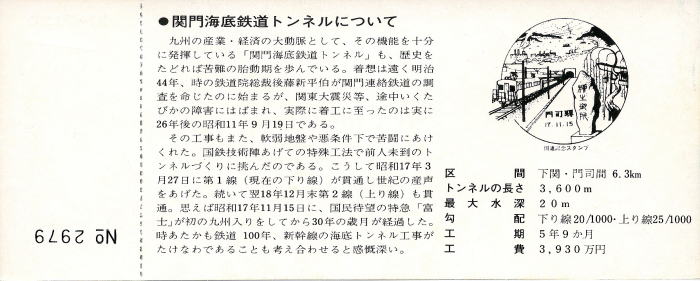 ●関門海底鉄道トンネルについて
九州の産業・経済の大動脈として、その機能を十分
に発揮している「関門海底鉄道トンネル」も、歴史を
たどれば苦難の胎動期を歩んでいる。着想は遠く明治
44年、時の鉄道院総裁後藤新平伯が関門連絡鉄道の調
査を命じたのに始まるが、関東大震災等、途中いくた
びかの障害にはばまれ、実際に着工に至ったのは実に
26年後の昭和11年9月19日である。
その工事もまた、軟弱地盤や悪条件下で苦闘にあけ
くれた。国鉄技術陣あげての特殊工法で前人未到のト
ンネルづくりに挑んだのである。こうして昭和17年3
月27日に第1線（現在の下り線）が貫通し世紀の産声
をあげた。続いて翌18年12月末第2線（上り線）も貫
通。思えば昭和17年11月15日に、国民待望の特急「富
士」が初の九州入りをしてから30年の歳月が経過した。
時あたかも鉄道100年、新幹線の海底トンネル工事が
たけなわであることも考え合わせると感慨深い。
門司驛
17.11.15
開通記念スタンプ
区間 下関・門司間 6.3km
トンネルの長さ 3,600m
最大水深 20m
勾配 下り線20/1000・上り線25/1000
工期 5年9か月
工費 3,930万円
No 2979